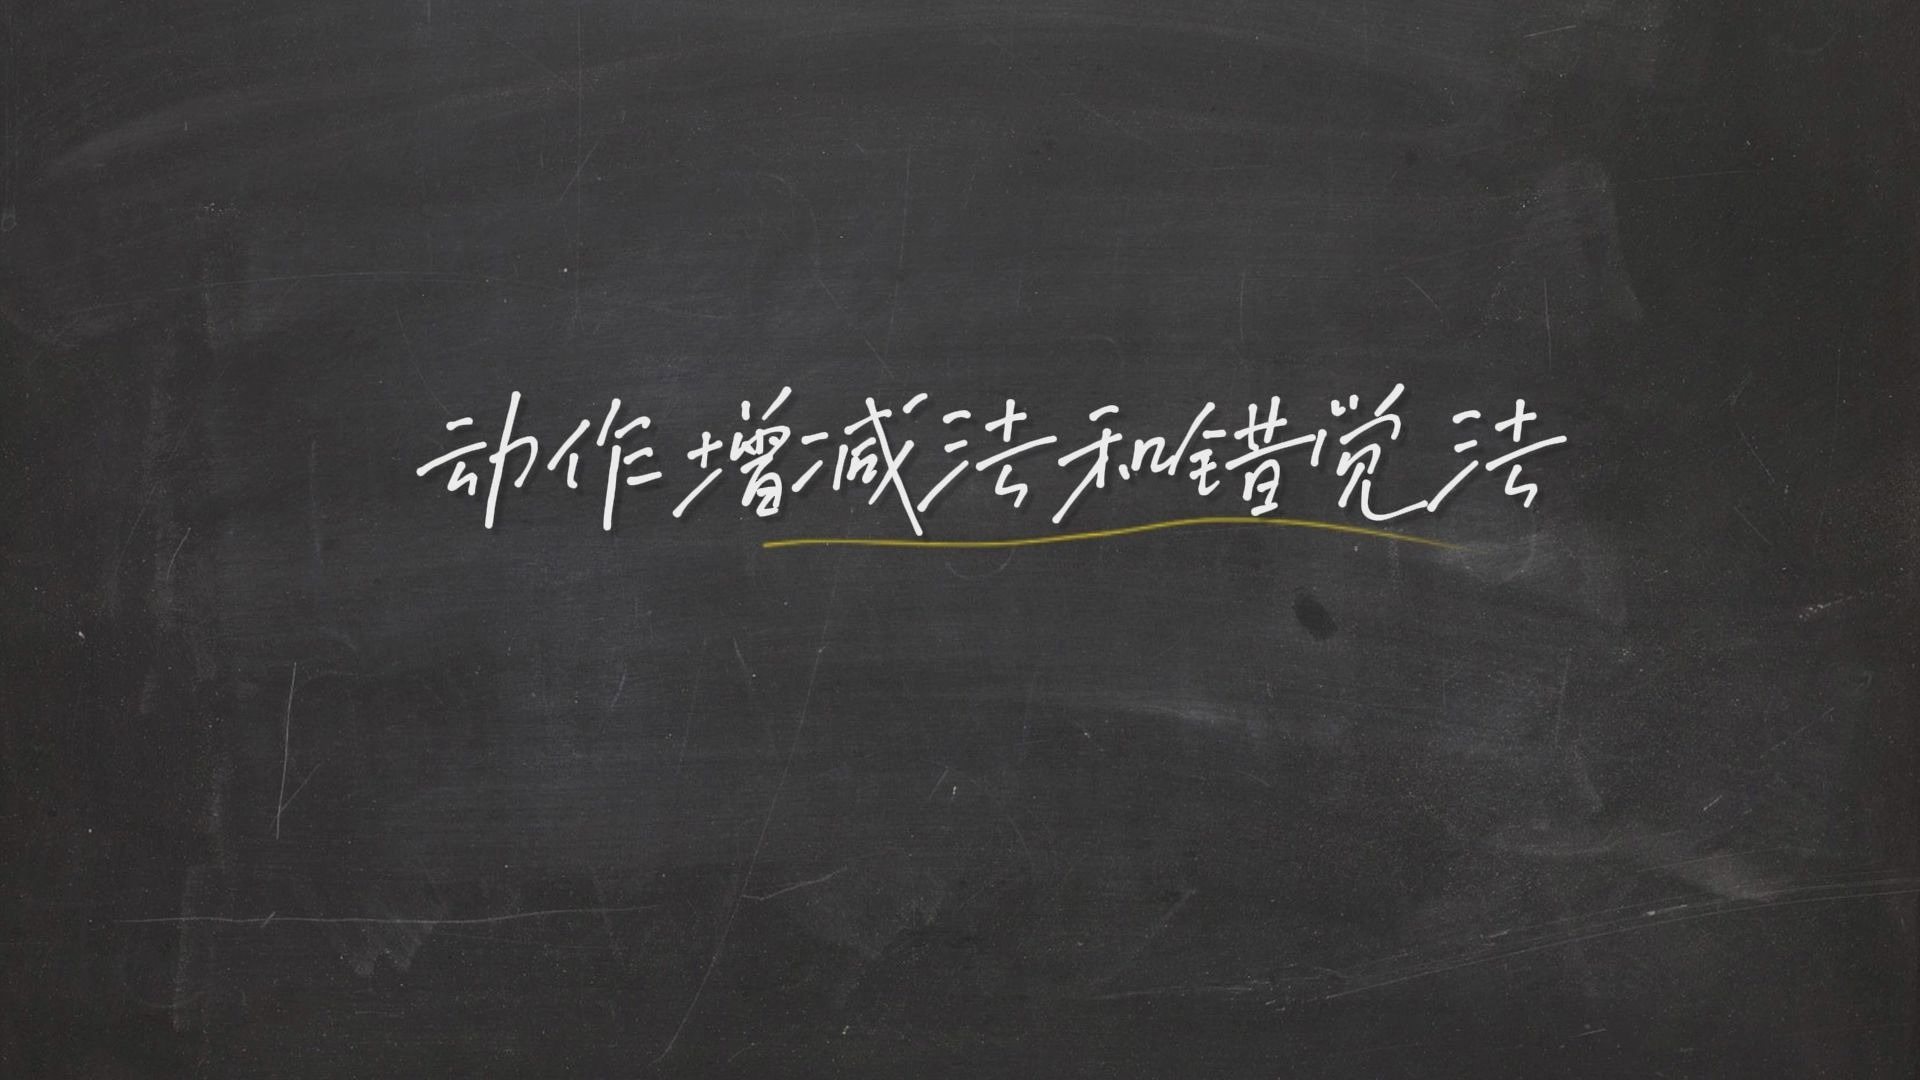 动作增减法和错觉法